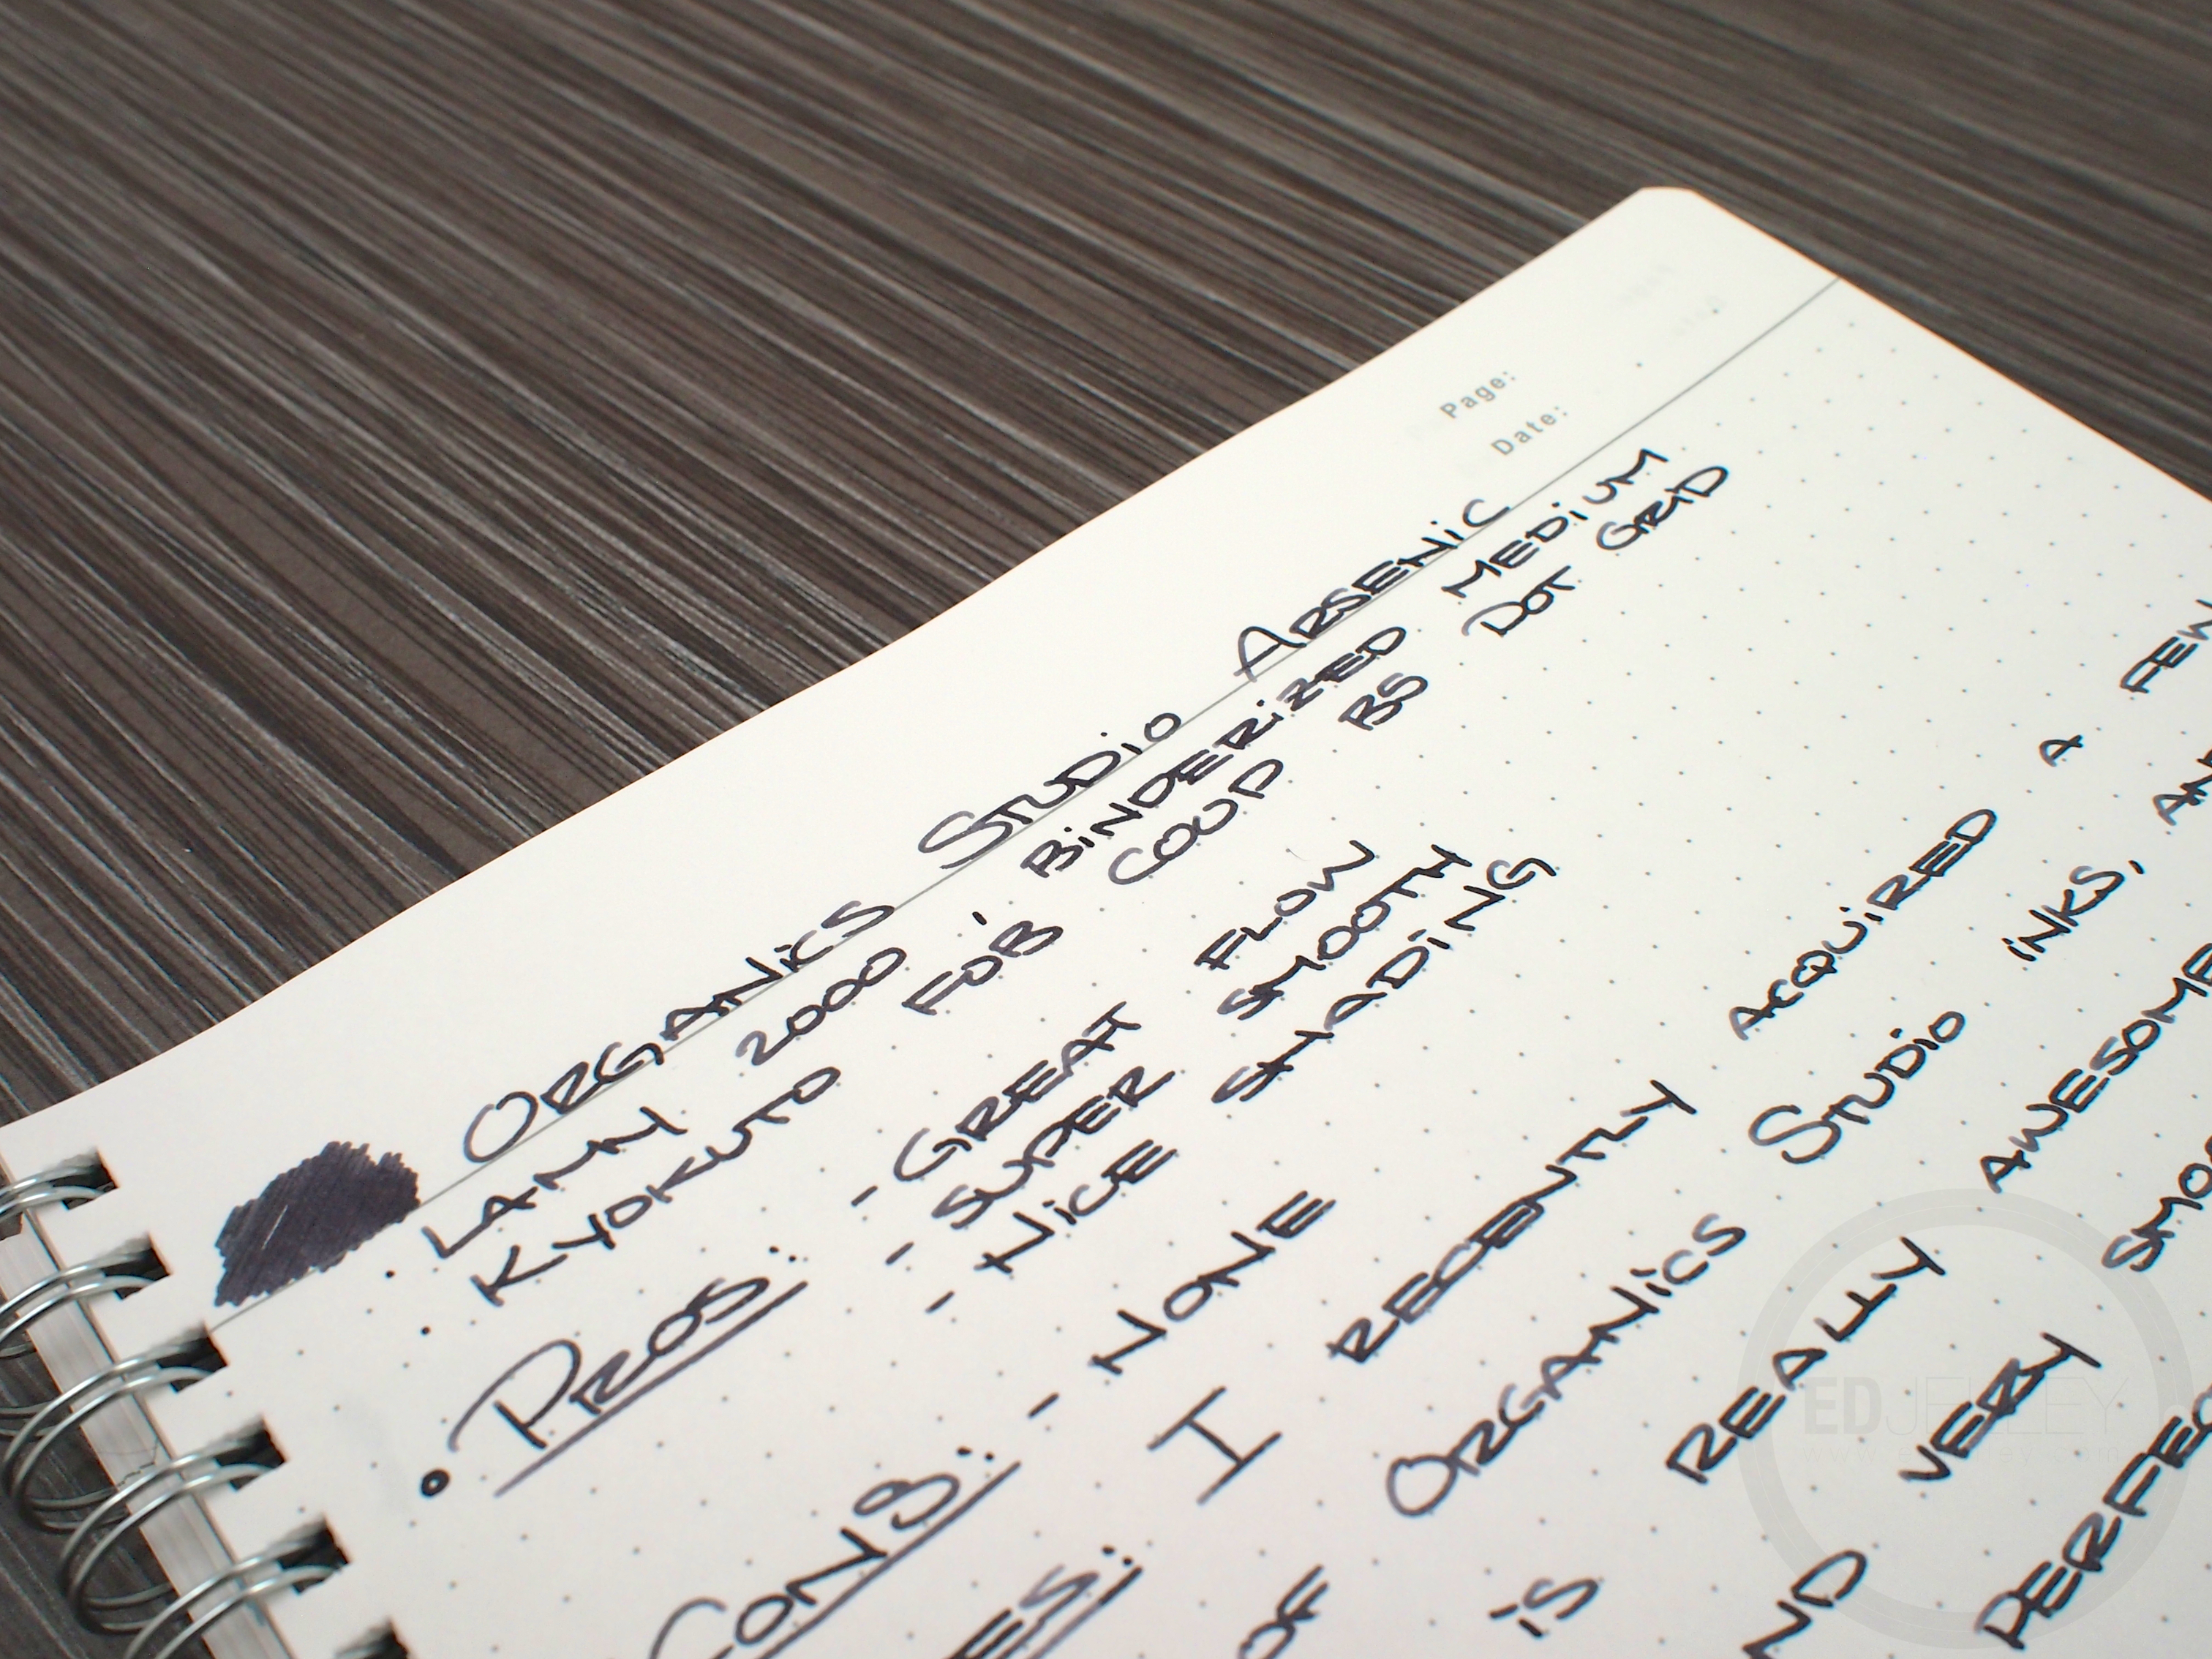 Page:
Date:
ORGANICS STUDIO ARSENIC
· LAMY 2000 - BINDERIZED MEDIUM
· KYOKUTO FOB COOP B5 DOT GRID
• PROS: - GREAT FLOW
- SUPER SMOOTH
- NICE SHADING
CONS: - NONE
I RECENTLY ACQUIRED A FEW
OF ORGANICS STUDIO INKS,
IS REALLY AWESOME
VERY
EDJELLEY